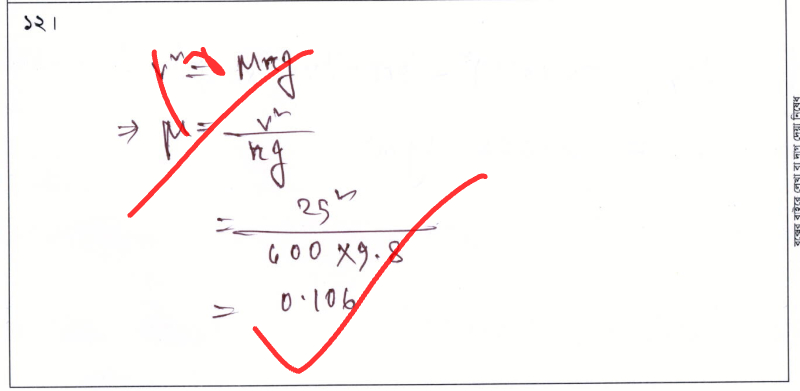 ১২।
v² = μrg
⇒ μ = v²/rg
= 25²/600 × 9.8
= 0.106
দাগের বাইরে লেখা বা দাগ দেয়া নিষেধ